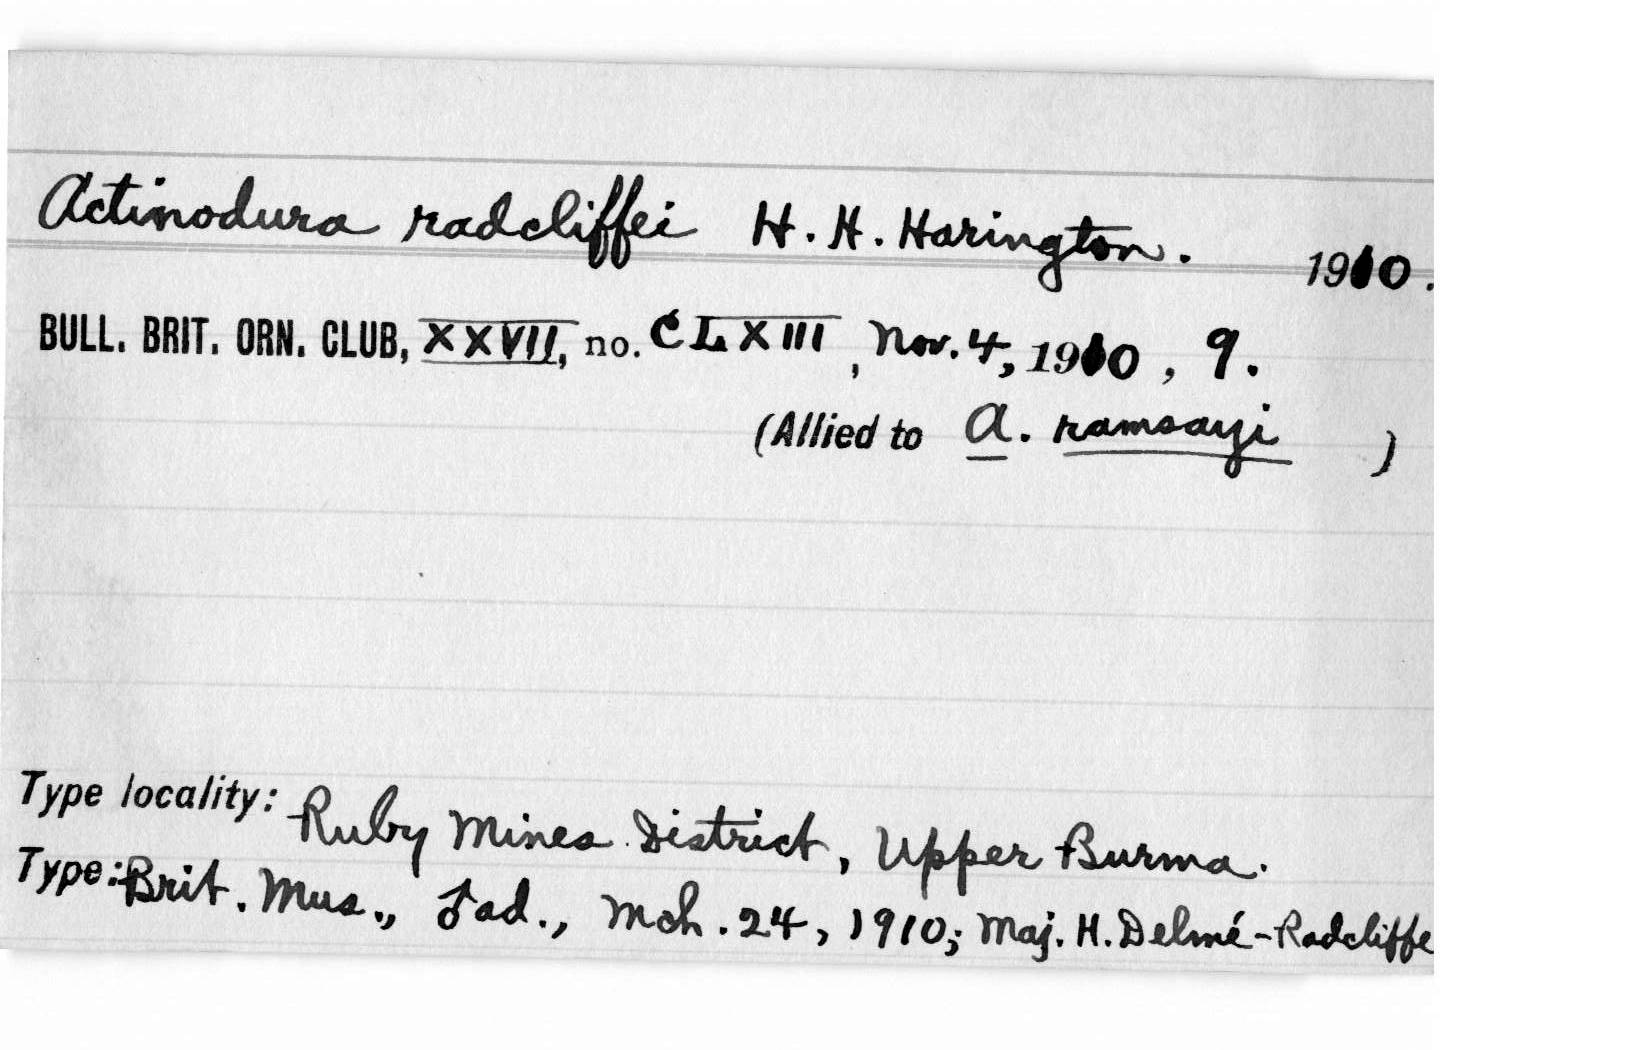 Actinodura radcliffei H. H. Harington. 1910.
BULL. BRIT. ORN. CLUB, XXVII, no. CLXIII, Nov. 4, 1910, 9.
(Allied to A. ramsayi )
Type locality: Ruby Mines District, Upper Burma.
Type: Brit. Mus., ♂ ad., Mch. 24, 1910; Maj. H. Delmé-Radcliffe